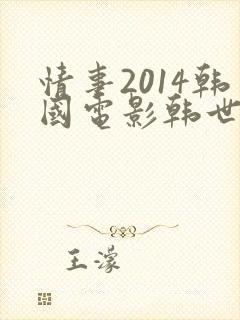 情事2014韩
國电影韩世
王濛